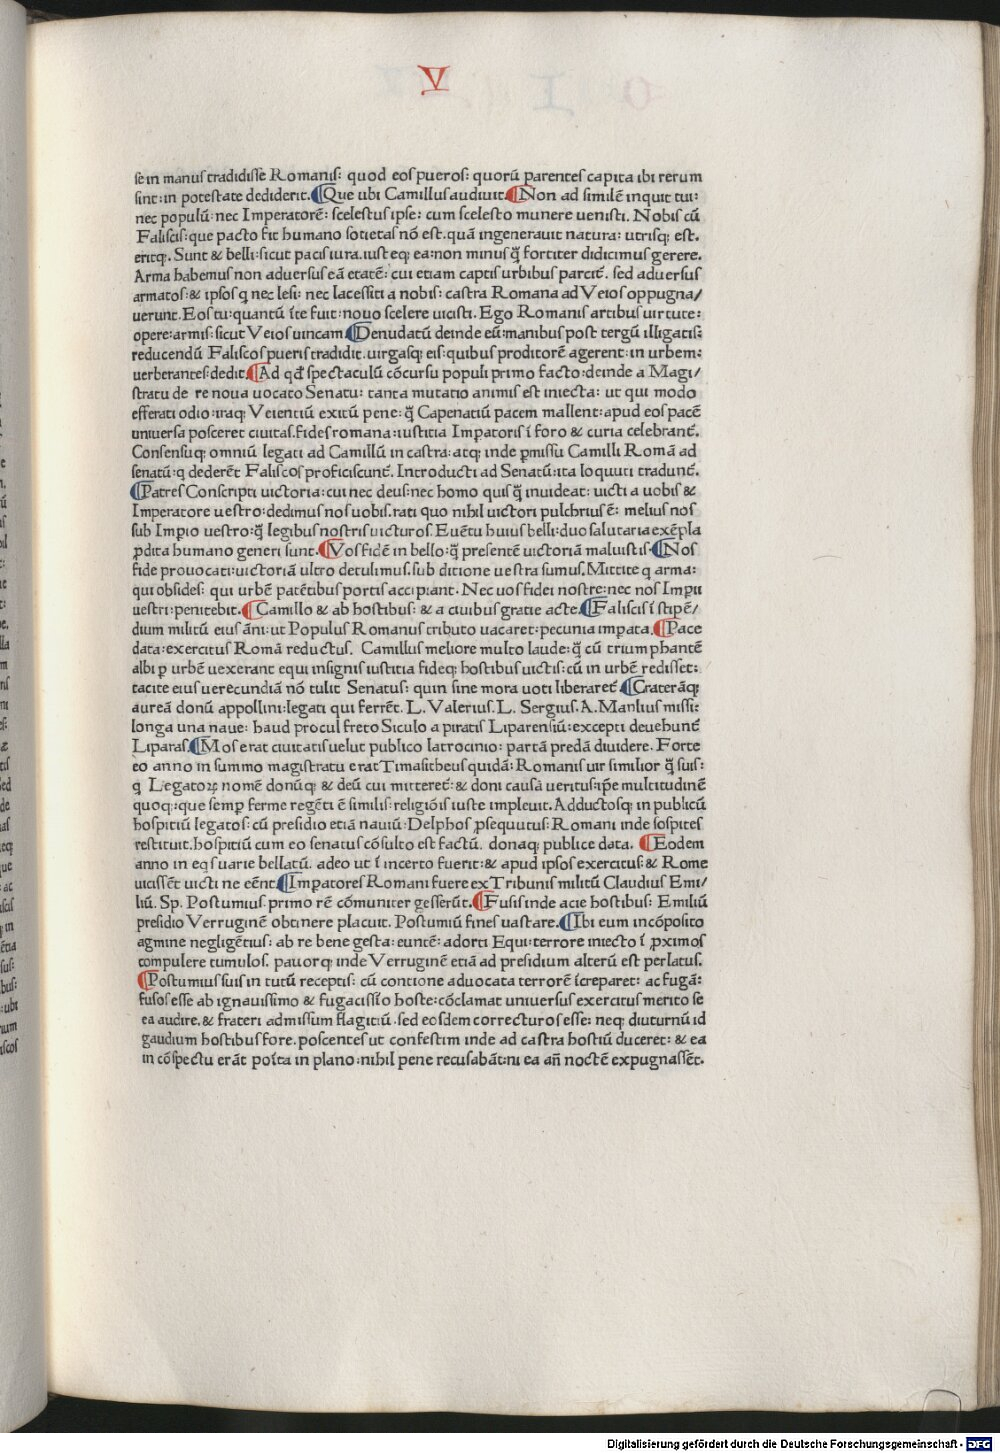 V
se in manus tradidisse Romanis: quod eos pueros: quorū parentes capita ibi rerum
sint: in potestate dediderit. ¶Que ubi Camillus audiuit. ¶Non ad similē inquit tui:
nec populū: nec Imperatorē: scelestus ipse: cum scelesto munere uenisti. Nobis cū
Faliscis: que pacto fit humano sotietas nō est. quā ingenerauit natura: utrisq; est.
eritq;. Sunt & belli: sicut pacis iura. iusteq; ea: non minus q̄ fortiter didicimus gerere.
Arma habemus non aduersus eā etatē: cui etiam captis urbibus parcit̄. sed aduersus
armatos: & ipsos q nec lesi: nec lacessiti a nobis: castra Romana ad Veios oppugna/
uerunt. Eos tu: quantū ī te fuit: nouo scelere uicisti. Ego Romanis artibus uirtute:
opere: armis: sicut Veios uincam ¶Denudatū deinde eū: manibus post tergū illigatis:
reducendū Faliscos pueris tradidit. uirgasq; eis: quibus proditorē agerent: in urbem:
uerberantes: dedit. ¶Ad qđ spectaculū cōcursu populi primo facto: deinde a Magi/
stratu de re noua uocato Senatu: tanta mutatio animis est iniecta: ut qui modo
efferati odio: iraq; Veientiū exitū pene: q̄ Capenatiū pacem mallent: apud eos pacē
uniuersa posceret ciuitas. fides romana: iustitia Imperatoris ī foro & curia celebrant̄.
Consensuq; omniū legati ad Camillū in castra: atq; inde pmissu Camilli Romā ad
senatū: q dederēt Faliscos proficiscunt̄. Introducti ad Senatū: ita loquuti tradunt̄.
¶Patres Conscripti uictoria: cui nec deus: nec homo quis q̄ inuideat: uicti a uobis &
Imperatore uestro: dedimus nos uobis. rati quo nihil uictori pulchrius ē: melius nos
sub Impio uestro: q̄ legibus nostris uicturos. Euētu huius belli: duo salutaria exēpla
pdita humano generi sunt. ¶Vos fidē in bello: q̄ presentē uictoriā maluistis. ¶Nos
fide prouocati: uictoriā ultro detulimus. sub ditione uestra sumus. Mittite q arma:
qui obsides: qui urbē patētibus portis accipiant. Nec uos fidei nostre: nec nos Impii
uestri: penitebit. ¶Camillo & ab hostibus: & a ciuibus gratie acte. ¶Faliscis ī stipē/
dium militū eius āni: ut Populus Romanus tributo uacaret: pecunia impata. ¶Pace
data: exercitus Romā reductus. Camillus meliore multo laude: q̄ cū triumphantē
albi p urbē uexerant equi insignis iustitia fideq; hostibus uictis: cū in urbē redisset:
tacite eius uerecundiā nō tulit Senatus: quin sine mora uoti liberaret̄ ¶Craterāq;
aureā donū appollini: legati qui ferrēt. L. Valerius. L. Sergius. A. Manlius missi:
longa una naue: haud procul freto Siculo a piratis Liparensiū: excepti deuehunt̄
Liparas. ¶Mos erat ciuitatis uelut publico latrocinio: partā predā diuidere. Forte
eo anno in summo magistratu erat Timasitheus quidā: Romanis uir similior q̄ suis:
q Legatoꝝ nomē donūq; & deū cui mitteret̄: & doni causā ueritus: ipse multitudinē
quoq;: que semp ferme regēti ē similis: religiōis iuste impleuit. Adductosq; in publicū
hospitiū legatos: cū presidio etiā nauiū: Delphos psequutus: Romani inde sospites
restituit. hospitiū cum eo senatus cōsulto est factū. donaq; publice data. ¶Eodem
anno in eqs uarie bellatū. adeo ut ī incerto fuerit: & apud ipsos exercitus: & Rome
uicissēt uicti ne eēnt ¶Impatores Romani fuere ex Tribunis militū Claudius Emi/
liū. Sp. Postumius. primo rē cōmuniter gesserūt. ¶Fusis inde acie hostibus: Emiliū
presidio Verruginē obtinere placuit. Postumiū fines uastare. ¶Ibi eum incōposito
agmine negligētius: ab re bene gesta: euntē: adorti Equi: terrore iniecto ī pximos
compulere tumulos. pauorq; inde Verruginē etiā ad presidium alterū est perlatus.
¶Postumius suis in tutū receptis: cū contione aduocata terrorē īcreparet: ac fugā:
fusos esse ab ignauissimo & fugacissīo hoste: cōclamat uniuersus exercitus merito se
ea audire. & frateri admissum flagitiū. sed eosdem correcturos esse: neq; diuturnū id
gaudium hostibus fore. poscentes ut confestim inde ad castra hostiū duceret: & ea
in cōspectu erāt posita in plano: nihil pene recusabāt: ni ea an̄ noctē expugnassēt.
Digitalisierung gefördert durch die Deutsche Forschungsgemeinschaft - DFG